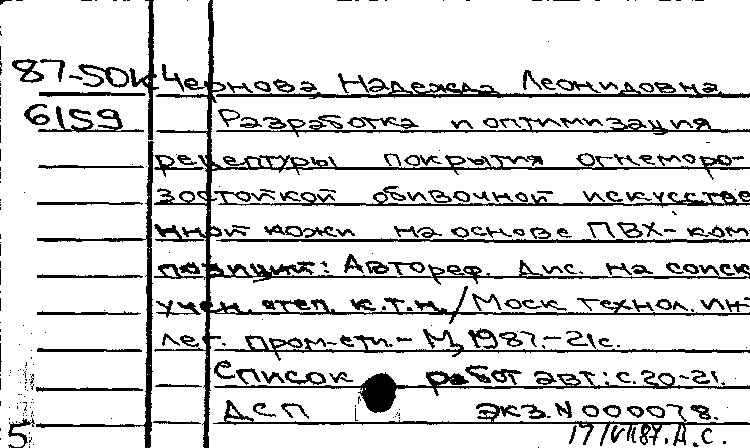 87-50к Чернова Надежда Леонидовна
6159 Разработка и оптимизация
рецептуры покрытия огнеморо-
зостойкой обивочной искусстве
нной кожи на основе ПВХ-ком
позиций: Автореф. Дис. на соиск
учен. степ. к.т.н./Моск технол. ин-
лег. пром-сти.- М, 1987.-21с.
Список работ авт: с.20-21.
ДСП экз.N 000078.
5 Д.С.